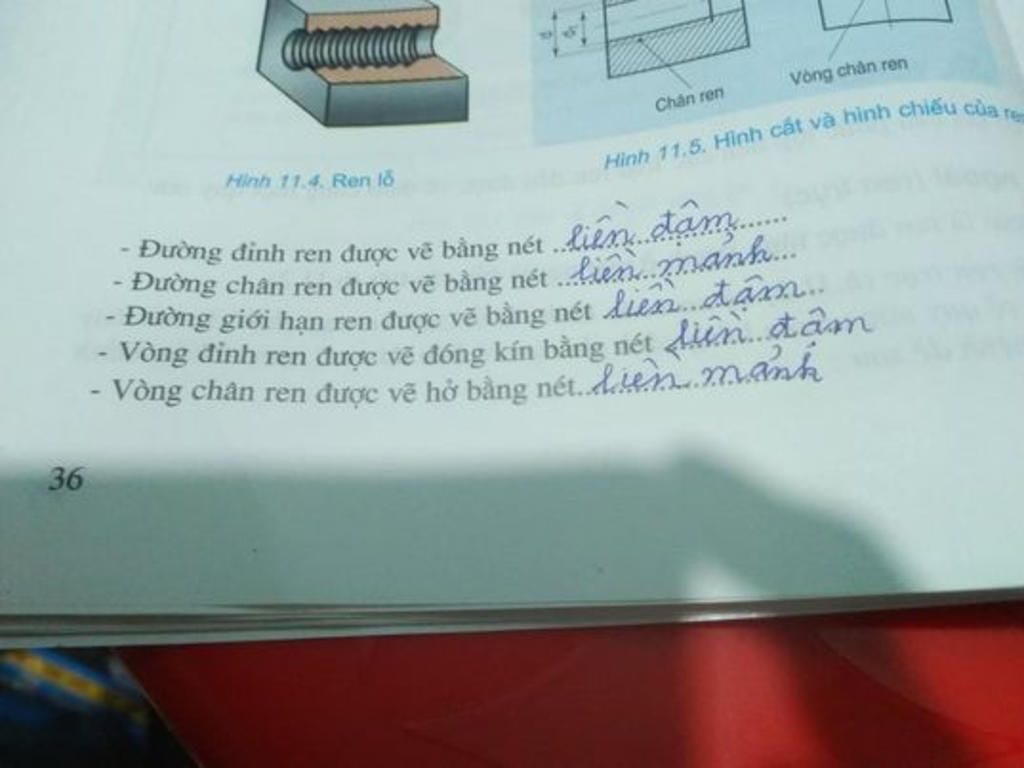 Chân ren
Vòng chân ren
Hình 11.4. Ren lỗ
Hình 11.5. Hình cắt và hình chiếu của ren
- Đường đỉnh ren được vẽ bằng nét ...liền đậm......
- Đường chân ren được vẽ bằng nét ...liền mảnh...
- Đường giới hạn ren được vẽ bằng nét ...liền đậm...
- Vòng đỉnh ren được vẽ đóng kín bằng nét liền đậm
- Vòng chân ren được vẽ hở bằng nét...liền mảnh
36